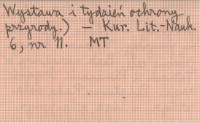 Wystawa i tydzień ochrony
przyrody.) — Kur. Lit.-Nauk.
6, nr 11. MT